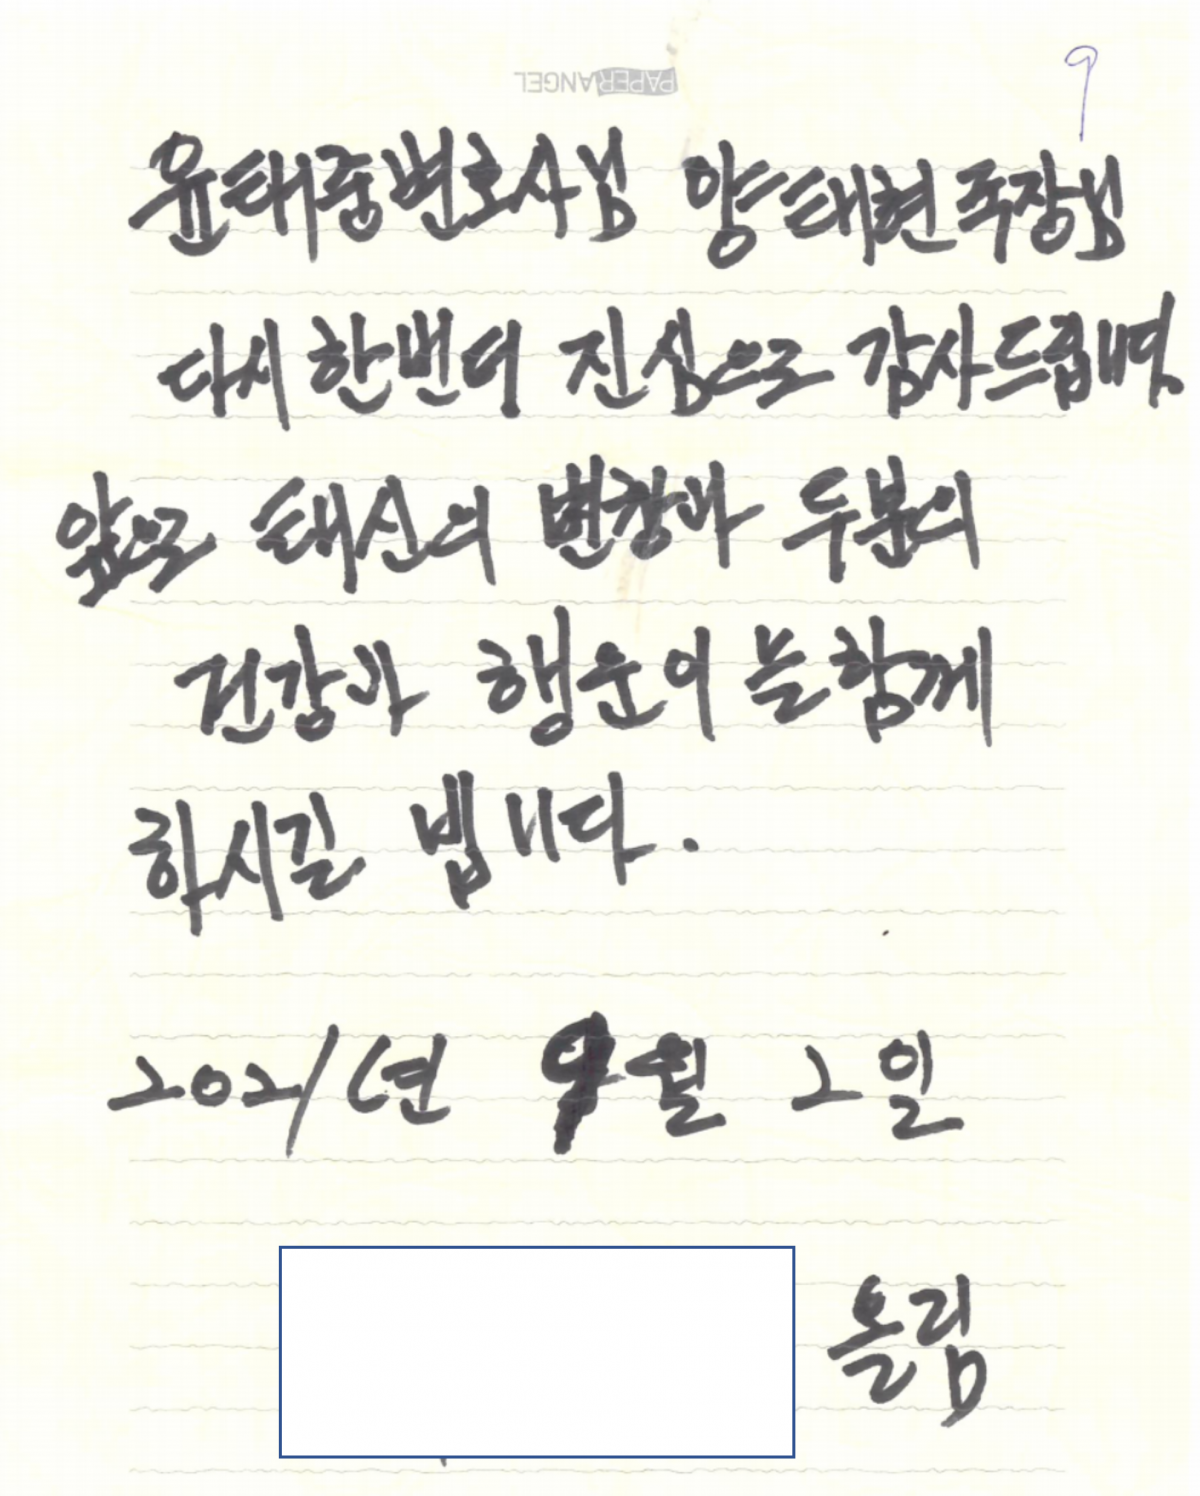 PAPER ANGEL
9
윤태중변호사님 양태현국장님
다시한번더 진심으로 감사드립니며
앞으로 태신의 번창과 두분의
건강과 행운이 늘함께
하시길 빕니다.
2021년 9월 2일
올림